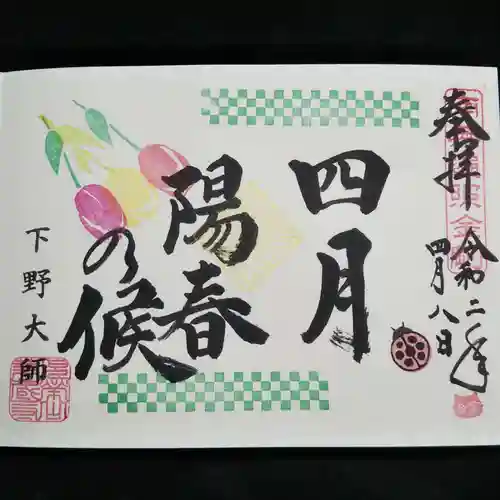 奉拝
令和二年
四月八日
四月
陽春
の候
下野大師